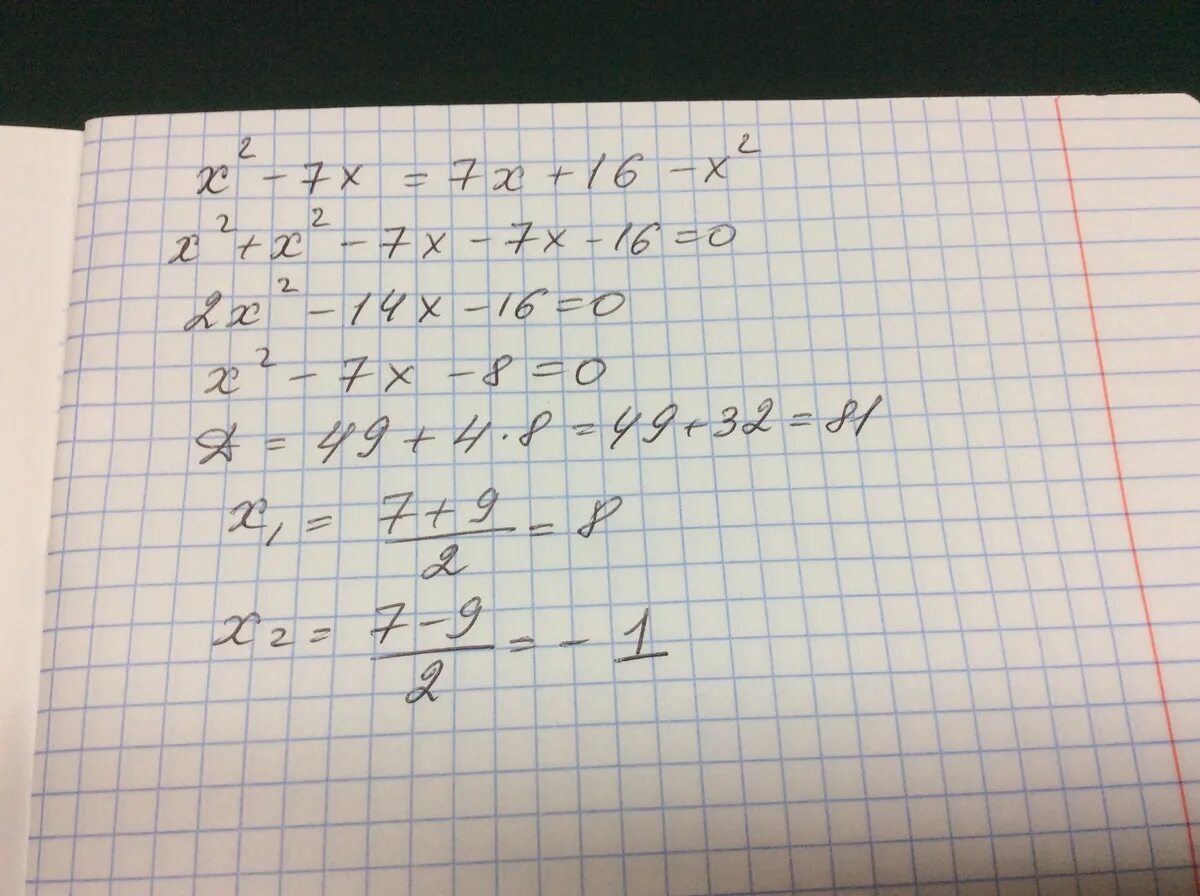 x² - 7x = 7x + 16 - x²
x² + x² - 7x - 7x - 16 = 0
2x² - 14x - 16 = 0
x² - 7x - 8 = 0
Д = 49 + 4 · 8 = 49 + 32 = 81
x₁ = (7 + 9)/2 = 8
x₂ = (7 - 9)/2 = - 1